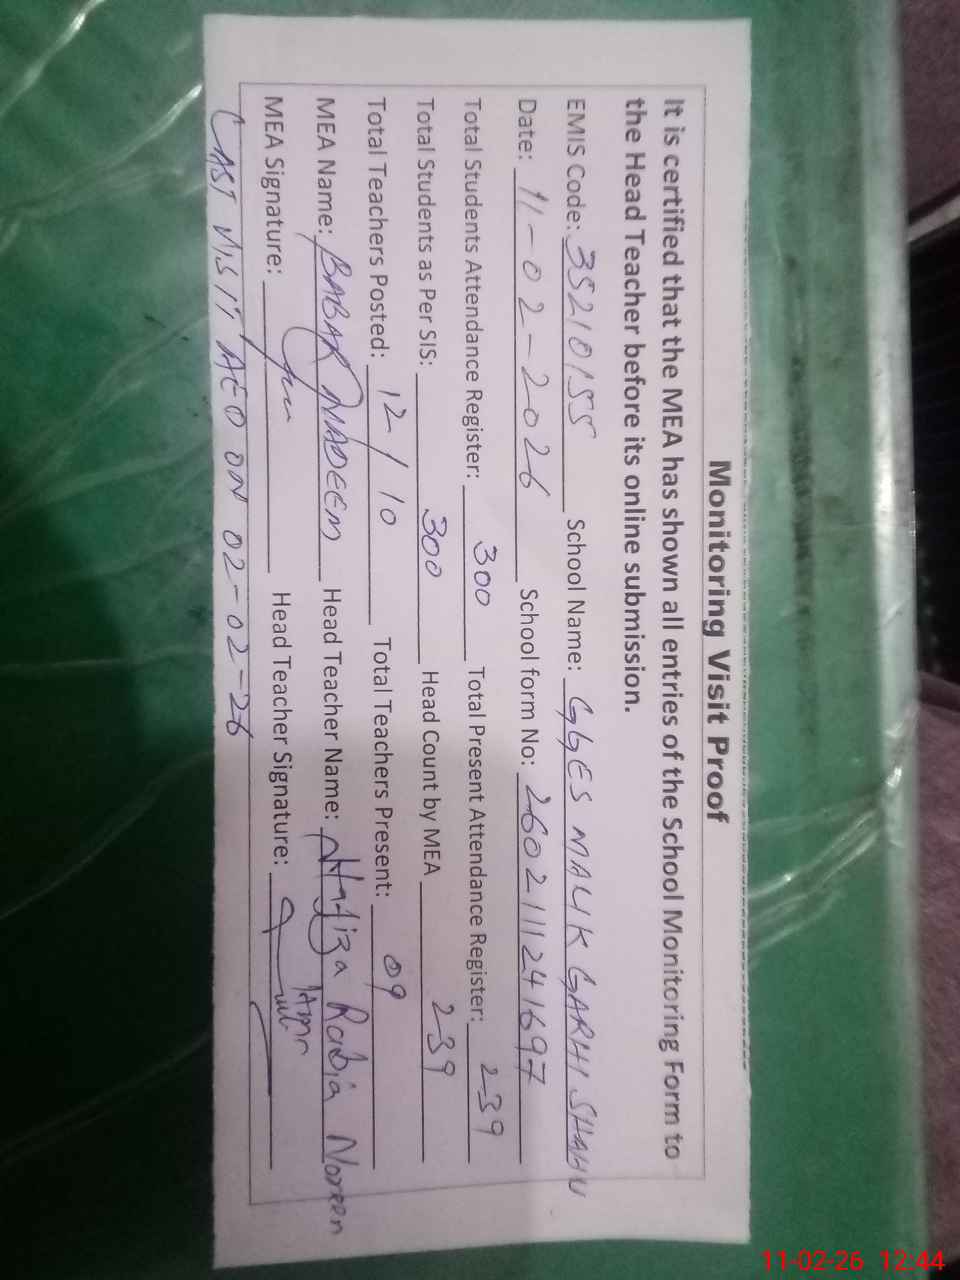 Monitoring Visit Proof
It is certified that the MEA has shown all entries of the School Monitoring Form to
the Head Teacher before its online submission.
EMIS Code: 35210155 School Name: GGES MALIK GARHI SHAHU
Date: 11-02-2026 School form No: 2602111241697
Total Students Attendance Register: 300 Total Present Attendance Register: 239
Total Students as Per SIS: 300 Head Count by MEA 239
Total Teachers Posted: 12/10 Total Teachers Present: 09
MEA Name: BABAR NADEEM Head Teacher Name: Hafiza Rabia Noreen
MEA Signature: Head Teacher Signature:
LAST VISIT AEO ON 02-02-26
11-02-26 12:44